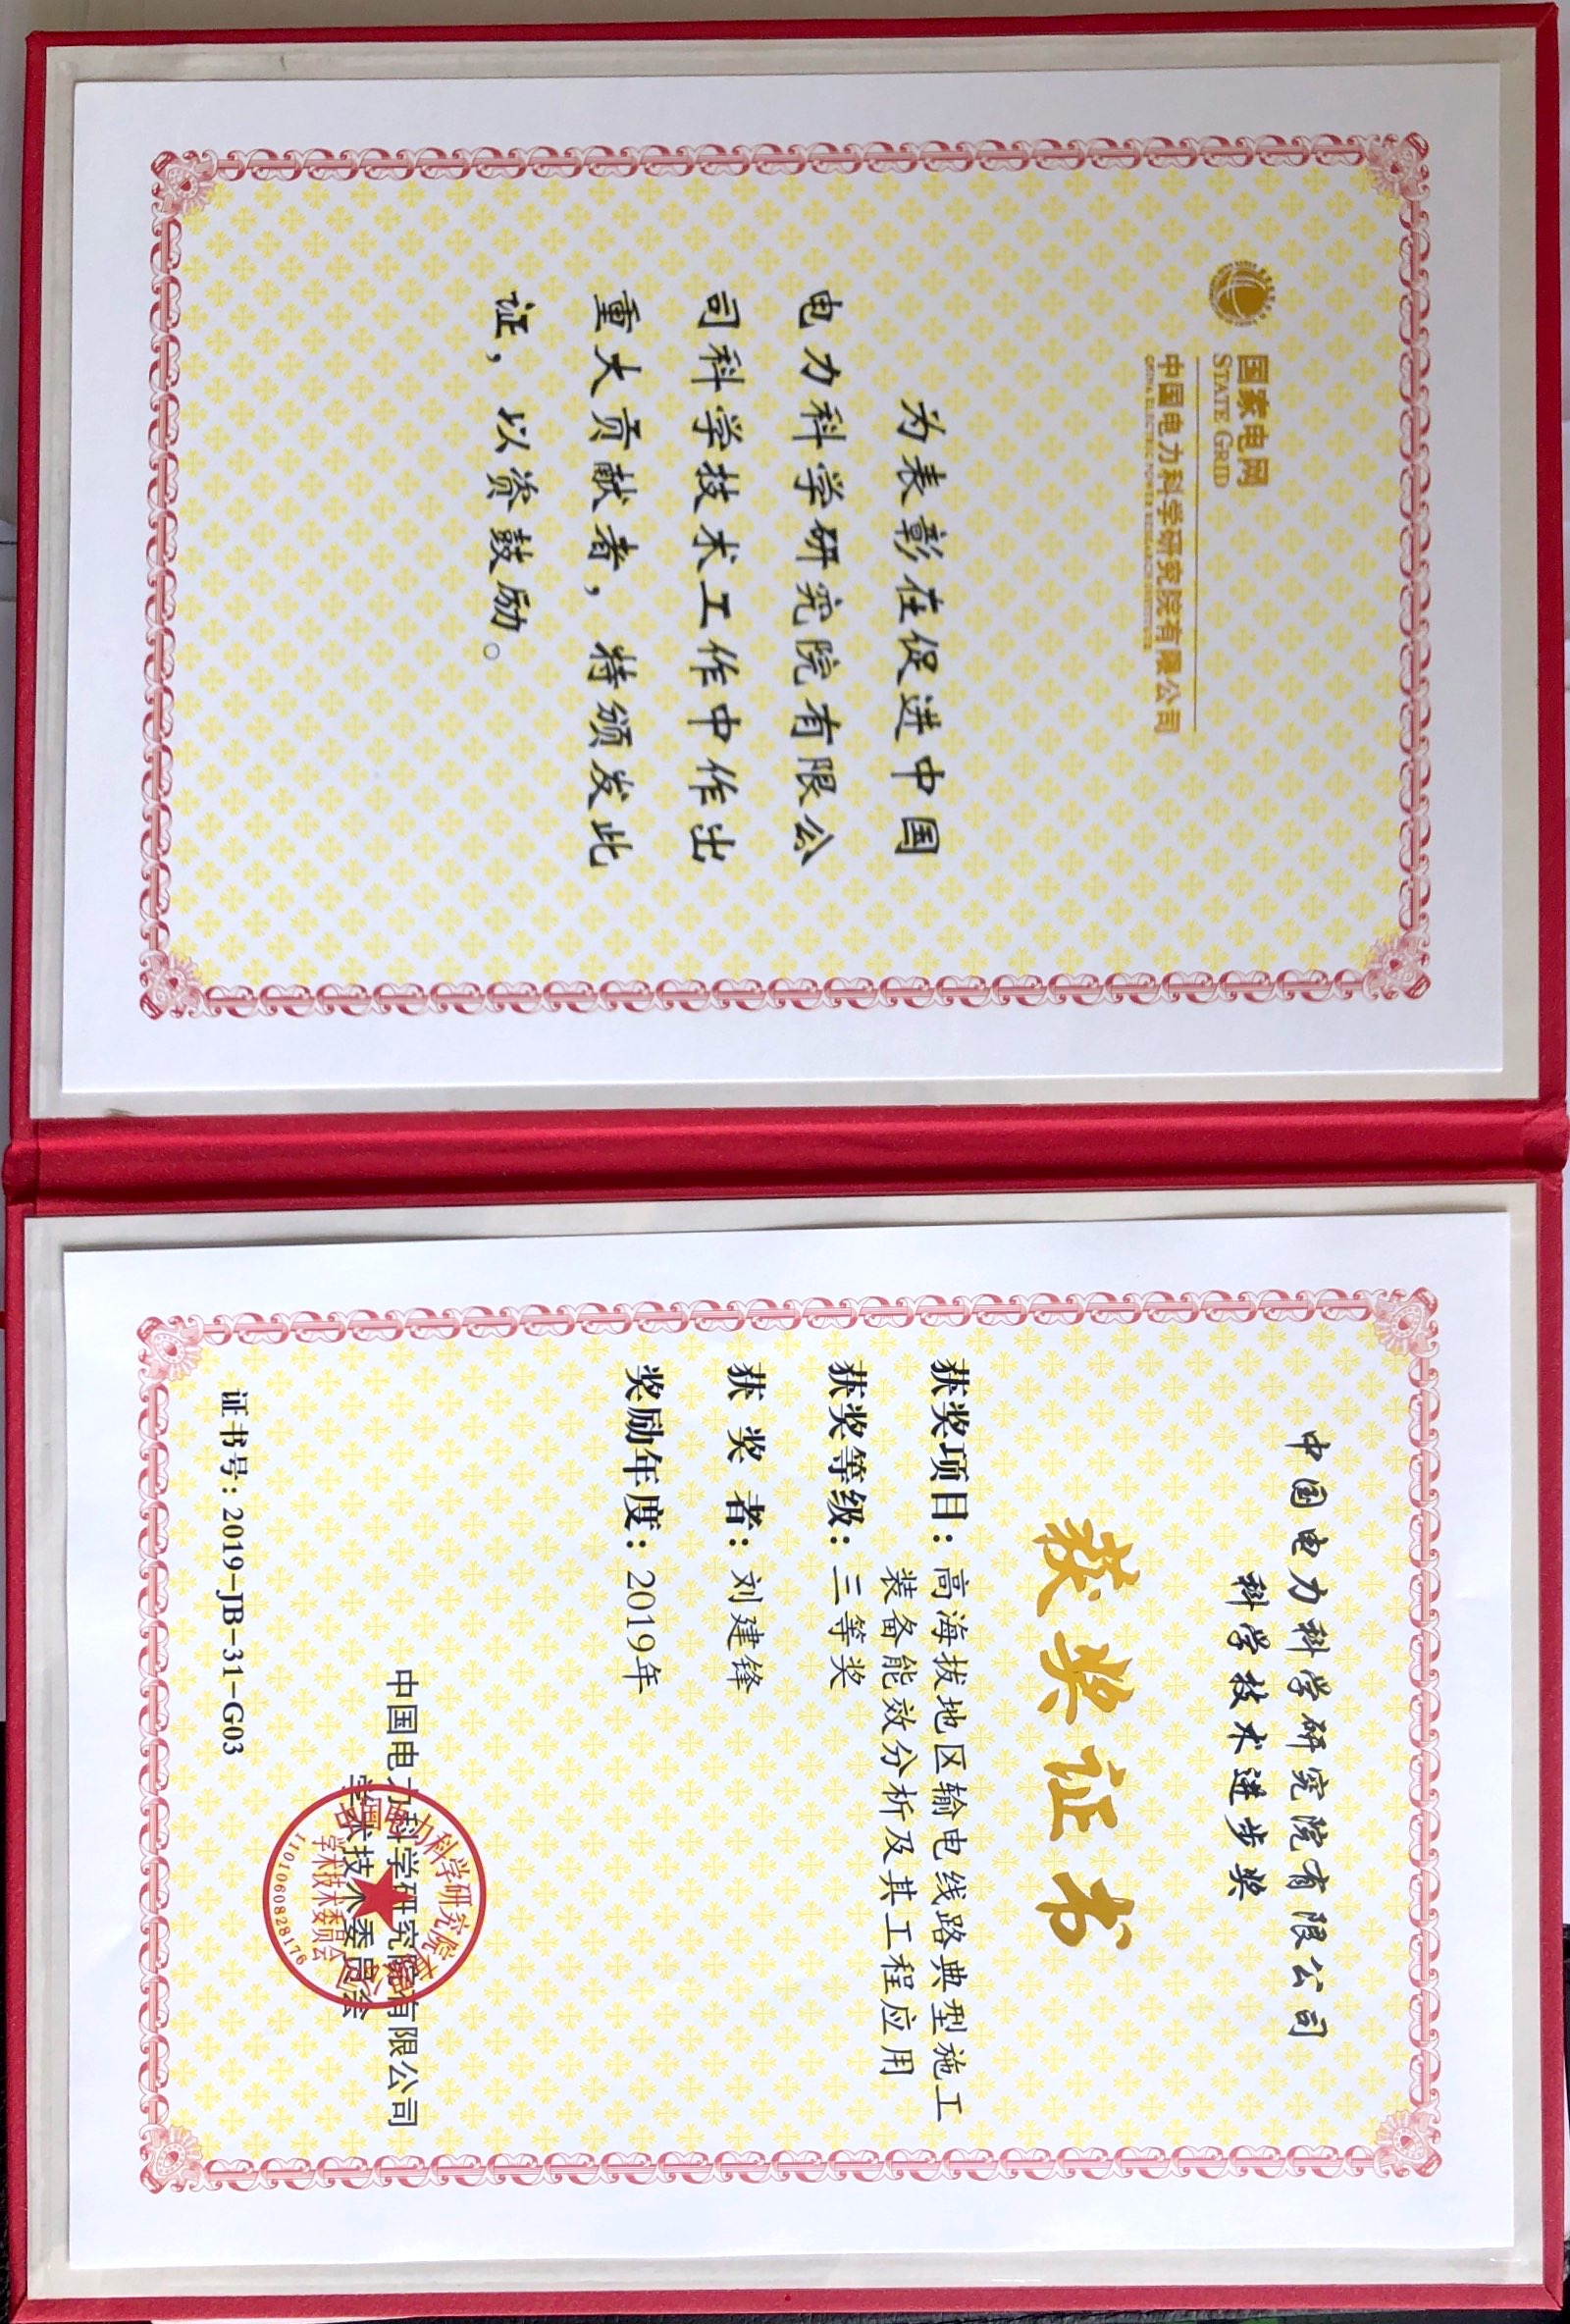 国家电网
STATE GRID
中国电力科学研究院有限公司
CHINA ELECTRIC POWER RESEARCH INSTITUTE
为表彰在促进中国
电力科学研究院有限公
司科学技术工作中作出
重大贡献者，特颁发此
证，以资鼓励。
中国电力科学研究院有限公司
科学技术进步奖
获奖证书
获奖项目：高海拔地区输电线路典型施工
装备能效分析及其工程应用
获奖等级：三等奖
获 奖 者：刘建锋
奖励年度：2019年
中国电力科学研究院有限公司
学术技术委员会
中国电力科学研究院有限公司
学术技术委员会
1101060828176
证书号：2019-JB-31-G03